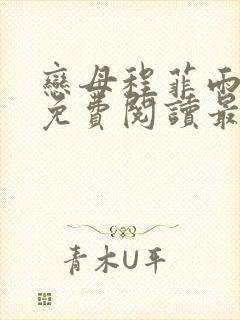 戀母程菲雨
免費閱讀最
青木U平